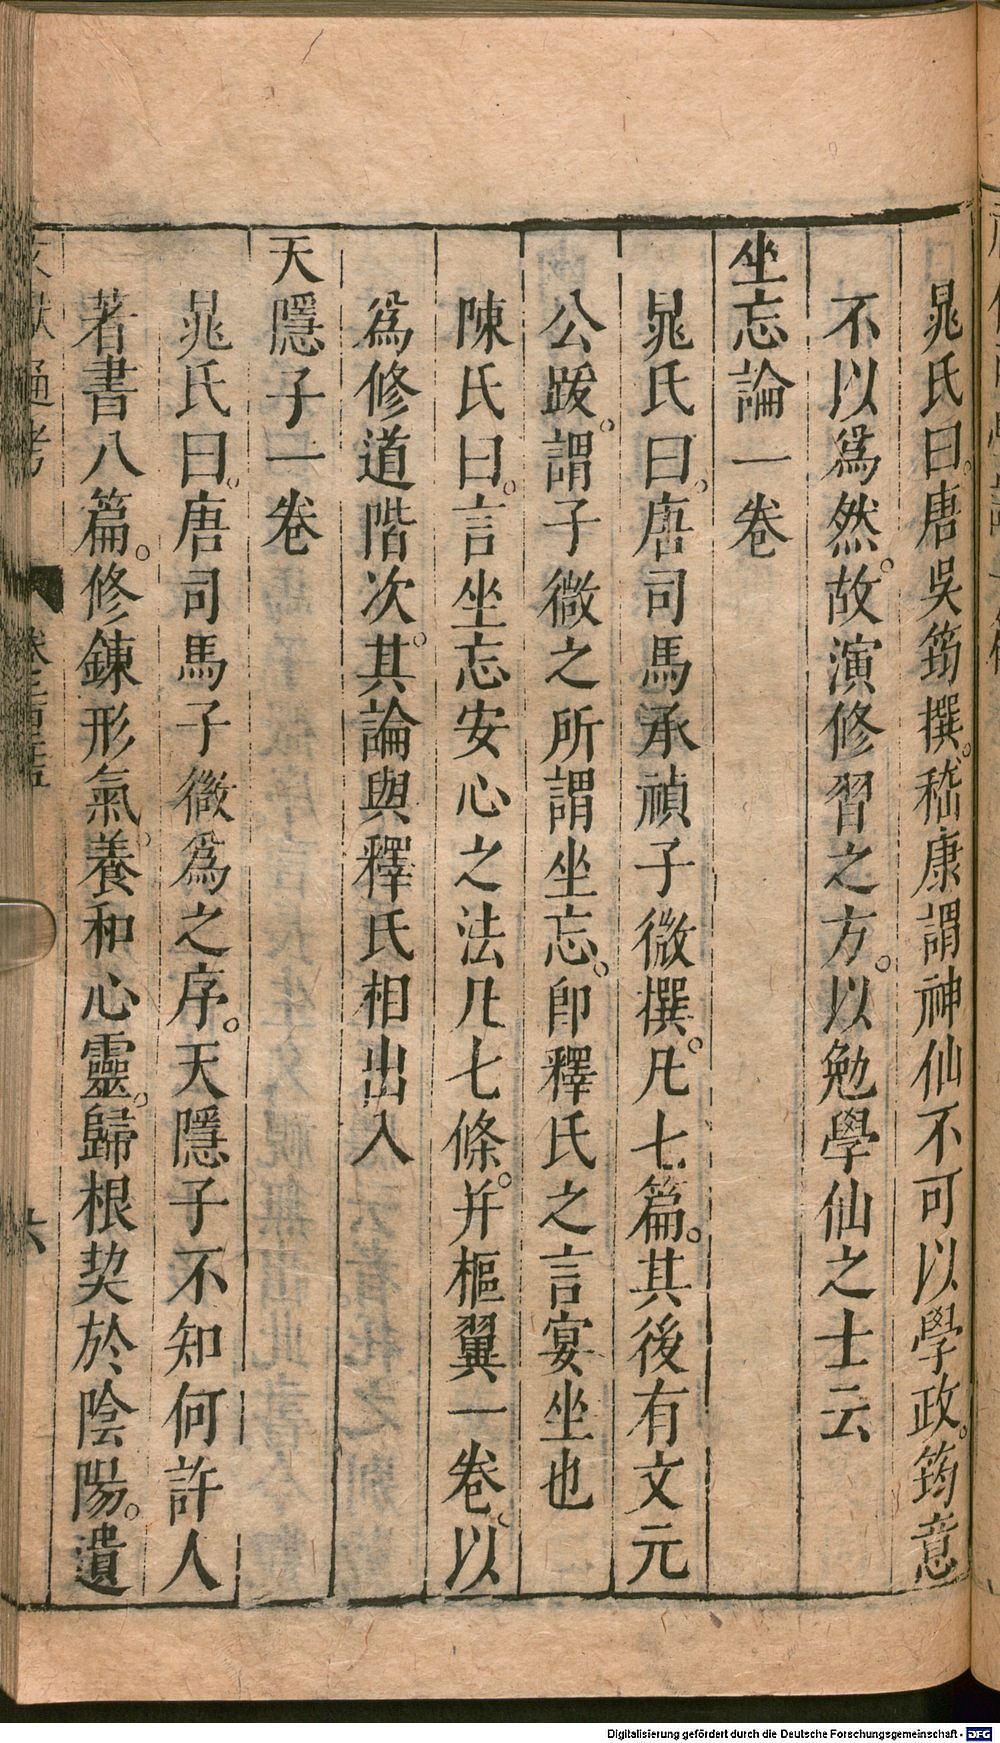 晁氏曰。唐吳筠撰。嵇康謂神仙不可以學政。筠意
不以爲然。故演修習之方。以勉學仙之士云
坐忘論一卷
晁氏曰。唐司馬承禎子微撰。凡七篇。其後有文元
公跋。謂子微之所謂坐忘。卽釋氏之言宴坐也
陳氏曰。言坐忘安心之法凡七條。并樞翼一卷。以
爲修道階次。其論與釋氏相出入
天隱子一卷
晁氏曰。唐司馬子微爲之序。天隱子不知何許人
著書八篇。修鍊形氣。養和心靈。歸根契於陰陽。遺
文獻通考
六
Digitalisierung gefördert durch die Deutsche Forschungsgemeinschaft - DFG